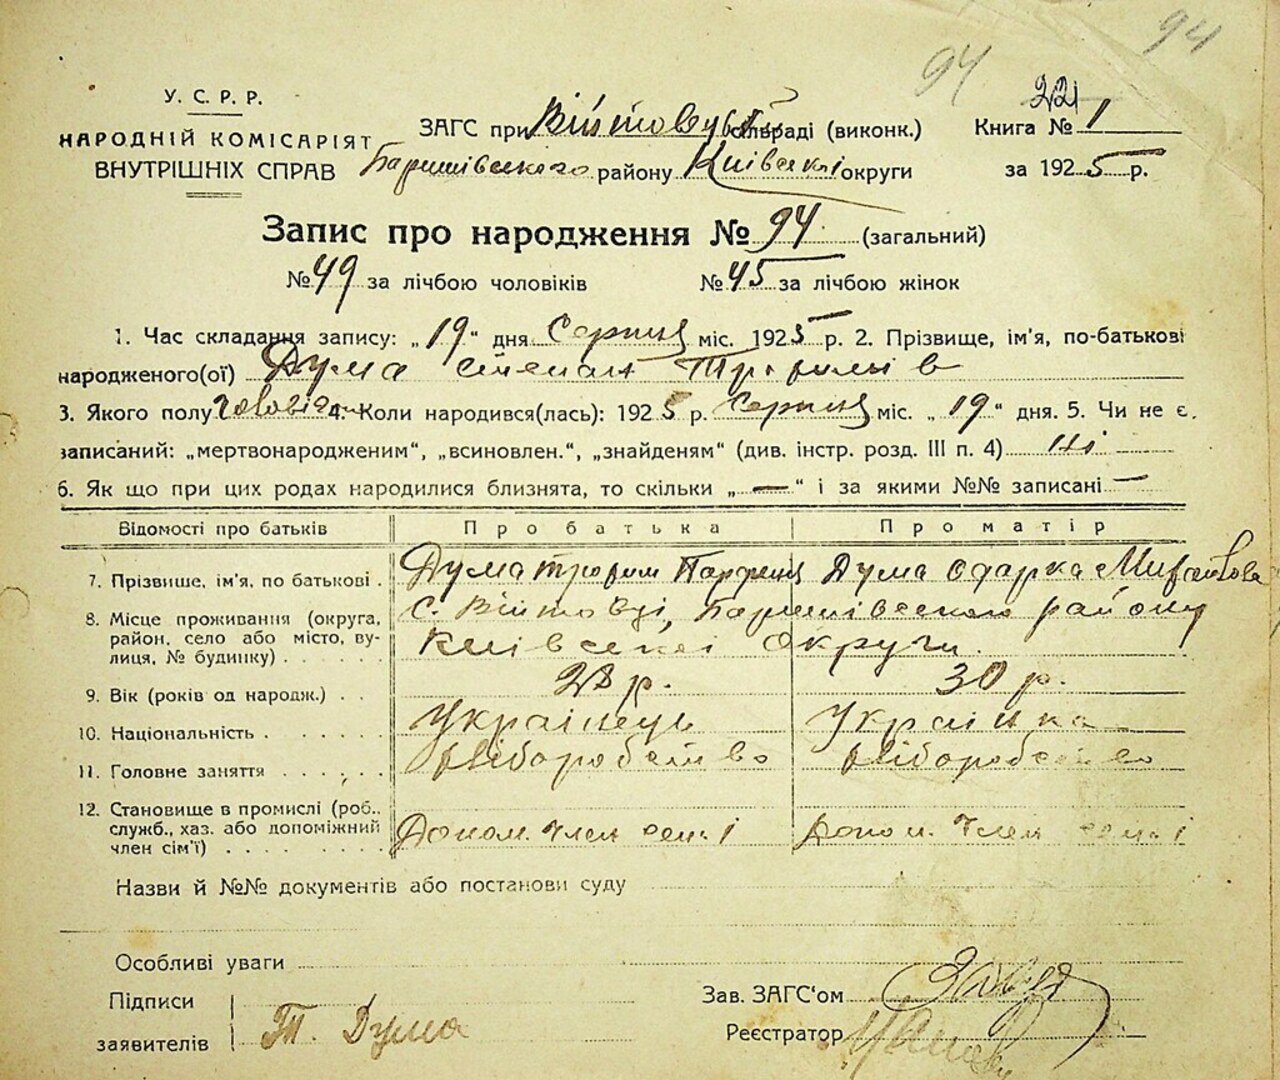 94 94
У. С. Р. Р.
НАРОДНІЙ КОМІСАРІЯТ
ВНУТРІШНІХ СПРАВ
ЗАГС при сільраді (виконк.)
Баришівського району Київської округи
221
Книга № 1
за 1925 р.
Запис про народження № 94 (загальний)
№ 49 за лічбою чоловіків № 45 за лічбою жінок
1. Час складання запису: „19“ дня Серпня міс. 1925 р. 2. Прізвище, ім'я, по-батькові
народженого(ої) Дума Степан Трофимів
3. Якого полу Чоловічан 4. Коли народився(лась): 1925 р. Серпня міс. „19“ дня. 5. Чи не є
записаний: „мертвонародженим“, „всиновлен.“, „знайденям“ (див. інстр. розд. III п. 4) Ні
6. Як що при цих родах народилися близнята, то скільки „—“ і за якими №№ записані —
Відомості про батьків Про батька Про матір
7. Прізвише, ім'я, по батькові . Дума Трофим Дума Одарка
8. Місце проживання (округа, район, село або місто, вулиця, № будинку) с. Війтовці, Баришівського району
Київської округи.
9. Вік (років од народж.) . . 28 р. 30 р.
10. Національність . Українець Українка
11. Головне заняття хліборобство хліборобство
12. Становище в промислі (роб., служб., хаз. або допоміжний член сім'ї) Допом. член семі Допом. член семі
Назви й №№ документів або постанови суду
Особливі уваги
Підписи
заявителів Т. Дума
Зав. ЗАГС'ом
Реєстратор